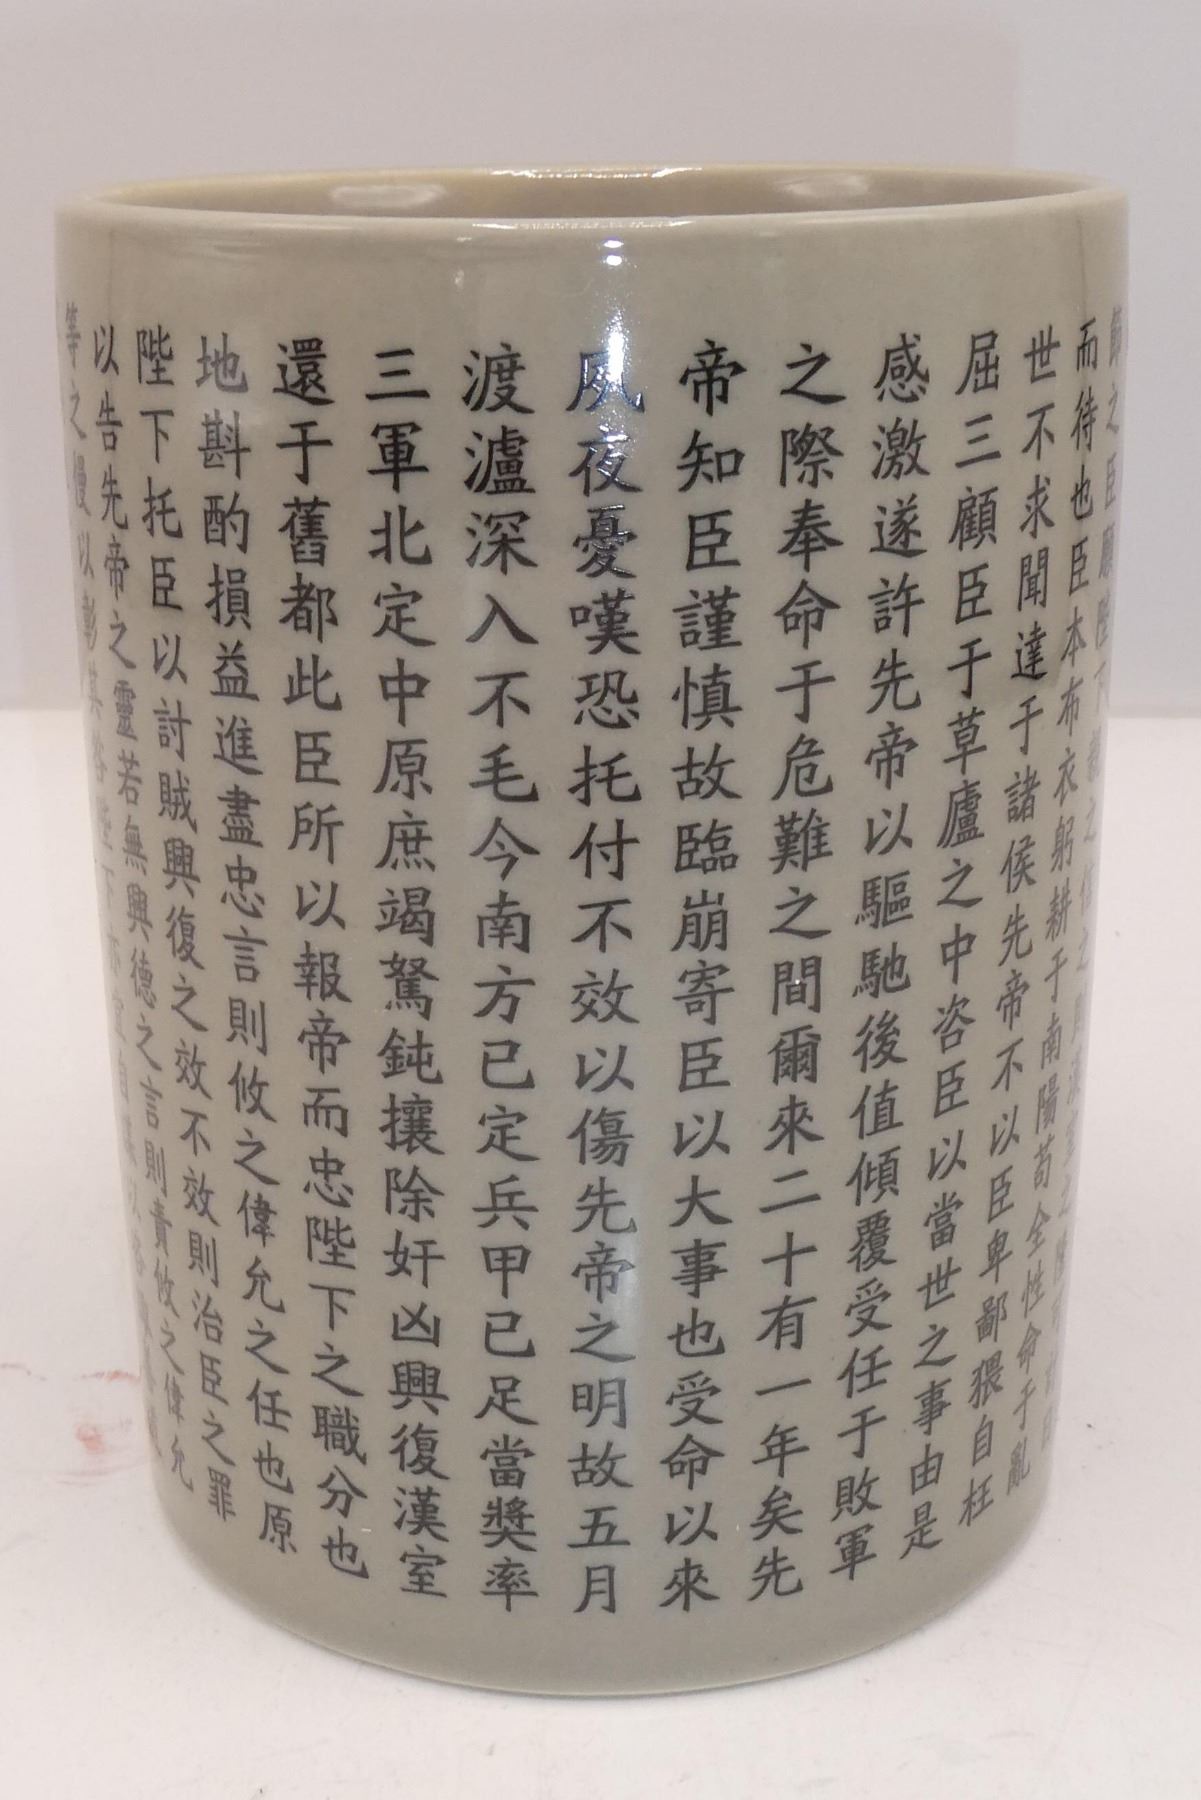 之臣願陛下親之信之
而待也臣本布衣躬耕于南陽苟全性命于亂
世不求聞達于諸侯先帝不以臣卑鄙猥自枉
屈三顧臣于草廬之中咨臣以當世之事由是
感激遂許先帝以驅馳後值傾覆受任于敗軍
之際奉命于危難之間爾來二十有一年矣先
帝知臣謹慎故臨崩寄臣以大事也受命以來
夙夜憂嘆恐托付不效以傷先帝之明故五月
渡瀘深入不毛今南方已定兵甲已足當獎率
三軍北定中原庶竭駑鈍攘除奸凶興復漢室
還于舊都此臣所以報帝而忠陛下之職分也
地斟酌損益進盡忠言則攸之偉允之任也原
陛下托臣以討賊興復之效不效則治臣之罪
以告先帝之靈若無興德之言則責攸之偉允
等之慢以彰其咎陛下亦宜自謀以